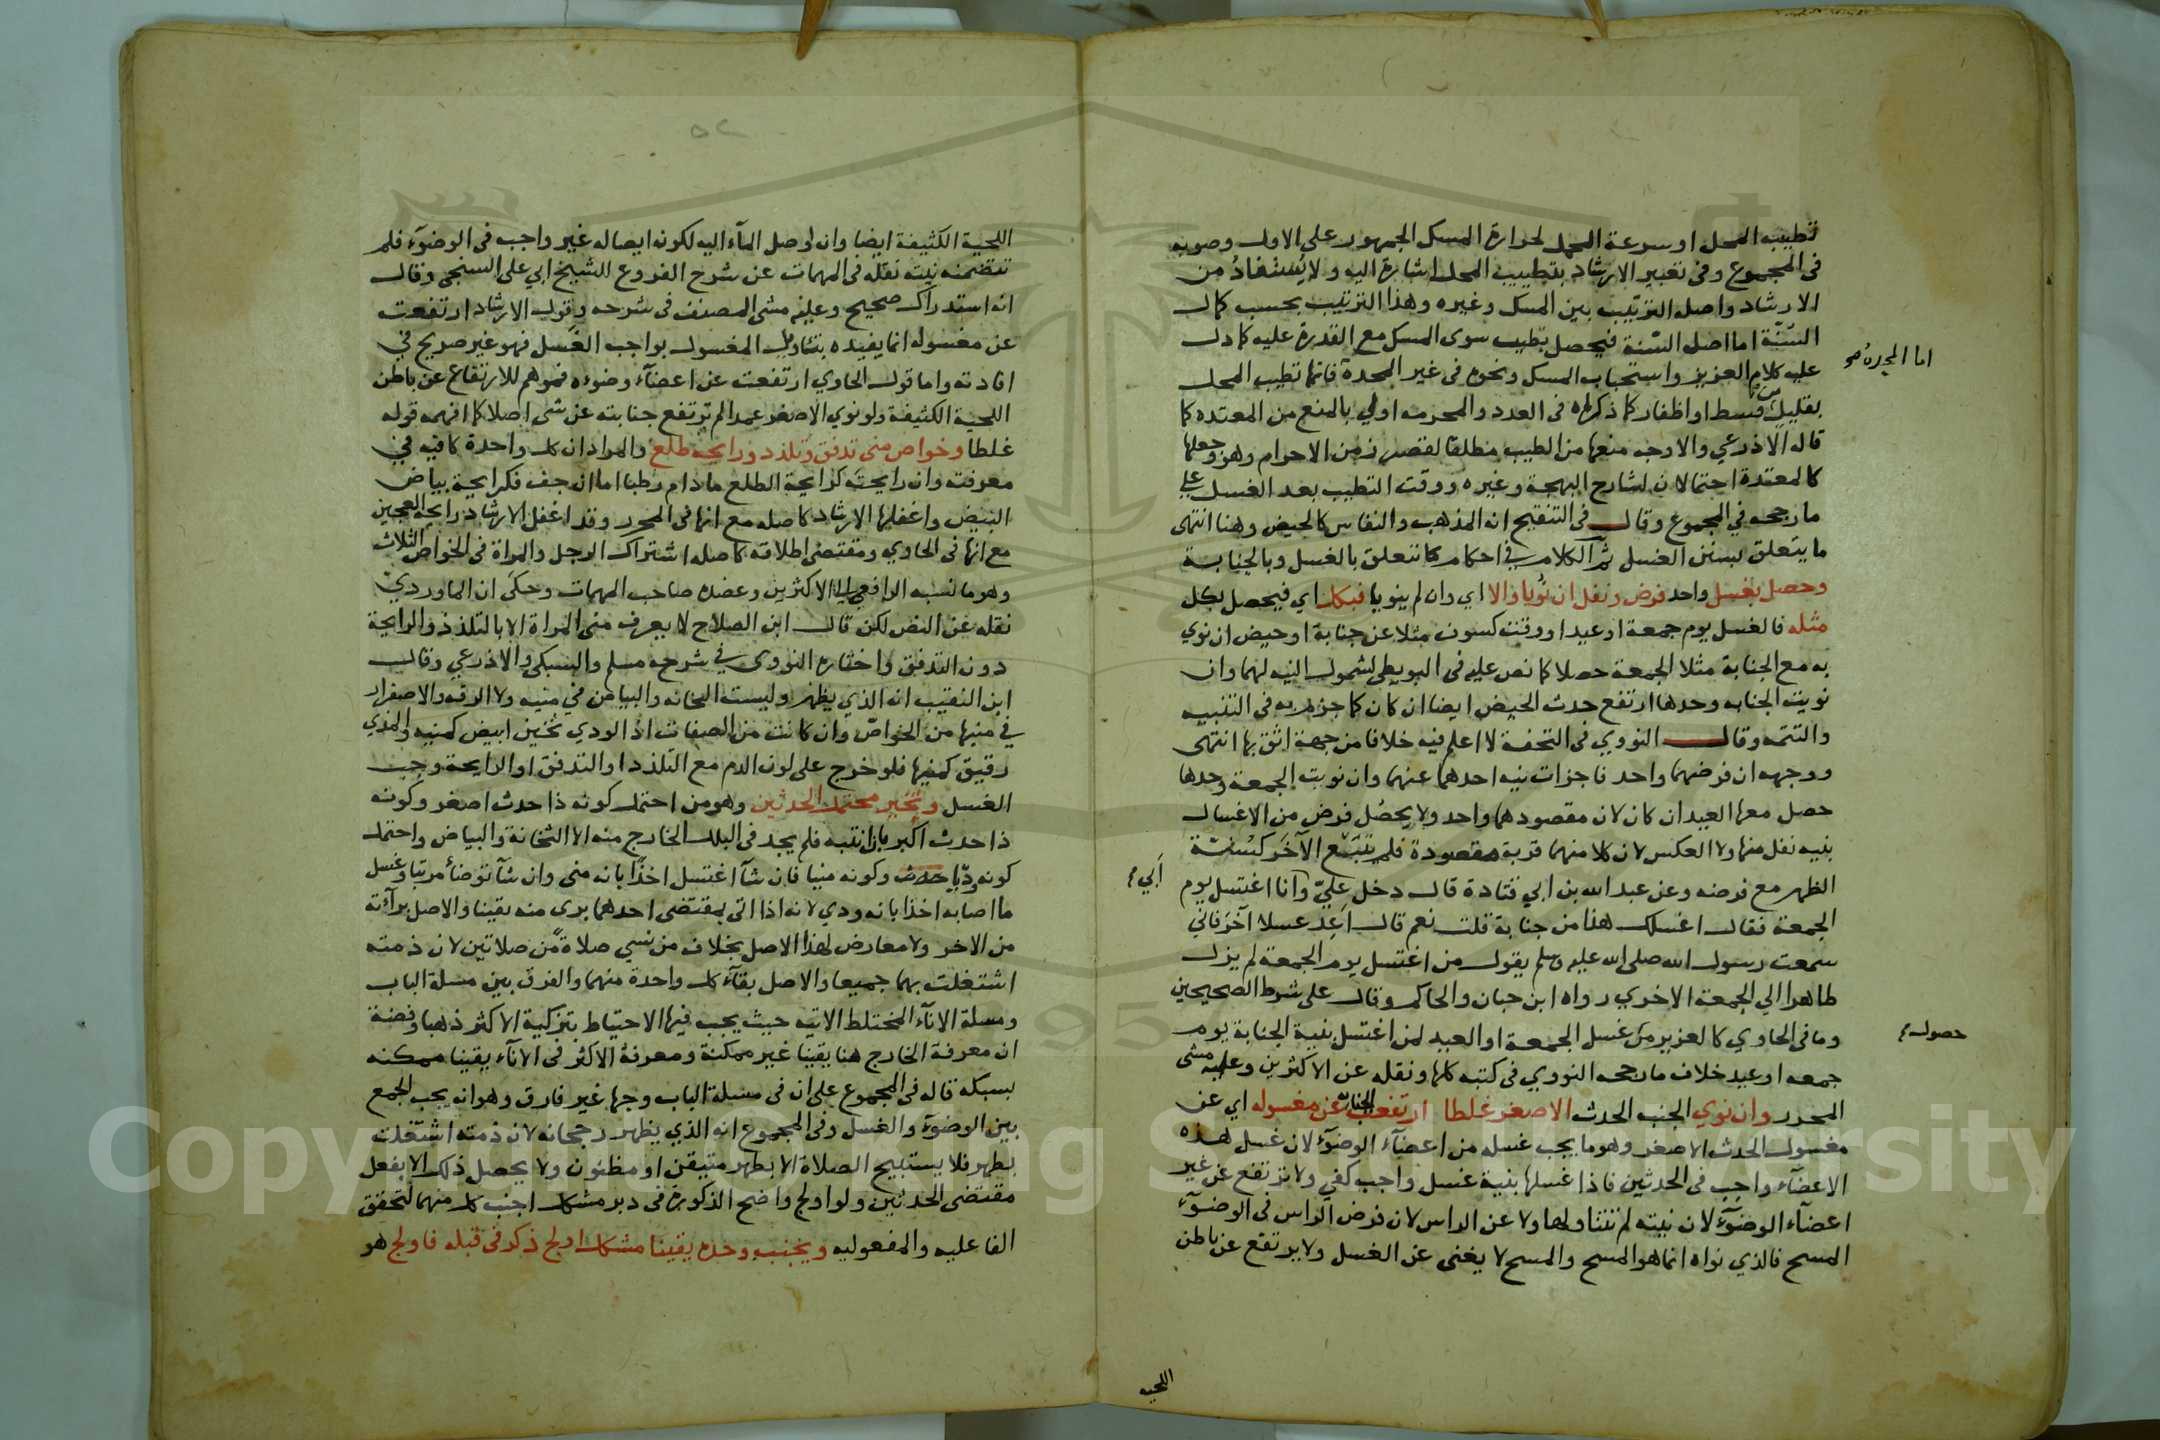 تطييب المحل او سرعة الحمل لحرارة المسك الجمهور علي الاول وصوبه
في المجموع وفي تعبير الارشاد بتطييب المحل اشارة اليه ولا يُستفادُ من
الارشاد واصله الترتيب بين المسك وغيره وهذا الترتيب بحسب كمال
السّنّة اما اصل السّنة فيحصل بطيب سوى المسك مع القدرة عليه كما دل
عليه كلام العزيز واستحباب المسك ونحوه في غير المحدة فانها تطيب المحل
اما المحرمة صح
بقليل قسط او اظفار كما ذكراه في العدد والمحرمه اولي بالمنع من المعتده كما
قاله الاذرعي والاوجه منعها من الطيب مطلقا لقصر زمن الاحرام وهو وجعلها
كالمعتدة احتمالان لشارح البهجة وغيره ووقت التطيب بعد الغسل علي
ما رجحه في المجموع وقال في التنقيح انه المذهب والنفاس كالحيض وهنا انتهى
ما يتعلق بسنن الغسل ثم الكلام في احكام كما تتعلق بالغسل وبالجنابة
وحصل بغسل واحد فرض ونفل ان نُويا والا اي وان لم ينويا فبكل اي فيحصل بكل
مثله فالغسل يوم جمعة او عيد او وقت كسوف مثلا عن جنابة او حيض ان نوي
به مع الجنابة مثلا الجمعة حصلا كما نص عليه في البويطي لشمول النيه لهما وان
نويت الجنابه وحدها ارتفع حدث الحيض ايضا ان كان كما جزم به في التنبيه
والتتمه وقال النووي في التحفة لا اعلم فيه خلافا من جهة اثق بها انتهى
ووجهه ان فرضهما واحد فاجزات نيه احدهما عنهما وان نويت الجمعة وحدها
حصل معها العيد ان كان لان مقصودهما واحد ولا يحصُل فرض من الاغسال
بنيه نفل منها ولا العكس لان كلا منهما قربة مقصودة فلم تتبع الآخر كسُنّة
الظهر مع فرضه وعن عبد الله بن ابي قتادة قال دخل عليّ وانا اغتسل يوم
أبي م
الجمعة فقال اغسلك هذا من جنابة قلت نعم قال اعد غسلا آخر فاني
سمعت رسول الله صلى الله عليه وسلم يقول من اغتسل يوم الجمعة لم يزل
طاهرا الي الجمعة الاخري رواه ابن حبان والحاكم وقال على شرط الصحيحين
وما في الحاوي كالعزيز من غسل الجمعة او العيد لمن اغتسل بنية الجنابة يوم
حصول م
جمعه او عيد خلاف ما رجحه النووي في كتبه كلها ونقله عن الاكثرين وعليه مشى
المحرر وان نوي الجنب الحدث الاصغر غلطا ارتفعت الجنابة عن مغسوله اي عن
مغسول الحدث الاصغر وهو ما يجب غسله من اعضآء الوضوٓء لان غسل هذه
الاعضآء واجب في الحدثين فاذا غسلها بنية غسل واجب كفي ولا ترتفع عن غير
اعضآء الوضوٓء لان نيته لم تتناولها ولا عن الراس لان فرض الراس في الوضوٓء
المسح فالذي نواه انما هو المسح والمسح لا يغنى عن الغسل ولا يرتفع عن باطن
اللحيه
٥٢
اللحية الكثيفة ايضا وان اوصل المآء اليه لكونه ايصاله غير واجب في الوضوٓء فلم
تتضمنه نيته نقله في المهمات عن شرح الفروع للشيخ ابي علي السنجي وقال
انه استدراك صحيح وعليه مشى المصنف في شرحه وقول الارشاد ارتفعت
عن مغسوله انما يفيده بتناول المغسول بواجب الغسل فهو غير صريح في
افادته واما قول الحاوي ارتفعت عن اعضآء وضوءه فموهم للارتفاع عن باطن
اللحية الكثيفة ولو نوي الاصغر عمدا لم ترتفع جنابته عن شى اصلا كما افهمه قوله
غلطا وخواص منى تدفق وتلذذ ورايحة طلع والمراد ان كل واحدة كافيه في
معرفته وان رايحته كرايحة الطلع ما دام رطبا اما ان جف فكرايحة بياض
البيض واغفلها الارشاد كاصله مع انها في المحرر وقد اغفل الارشاد رايحة العجين
مع انها في الحاوي ومقتضى اطلاقه كاصله اشتراك الرجل والمراة في الخواص الثلاث
وهو ما نسبه الرافعي الي الاكثرين وعضده صاحب المهمات وحكى ان الماورديّ
نقله عن النص لكن قال ابن الصلاح لا يعرف منى المراة الا بالتلذذ والرايحة
دون التدفق واختاره النووي في شرح مسلم والسبكي والاذرعي وقال
ابن النقيب انه الذي يظهر وليست الثخانه والبياض في منيه ولا الرقه والاصفرار
في منيها من الخواصّ وان كانت من الصفات اذ الودي ثخين ابيض كمنيه والمذي
رقيق كمنيها فلو خرج على لون الدم مع التلذذ او التدفق او الرايحة وجب
الغسل وتخير محتمل الحدثين وهو من احتمل كونه ذا حدث اصغر وكونه
ذا حدث اكبر بان انتبه فلم يجد في البلل الخارج منه الا الثخانة والبياض واحتمل
كونه وديا وكونه منيا فان شآ اغتسل اخذًا بانه منى وان شآ توضأ مرتبا وغسل
ما اصابه اخذا بانه ودي لانه اذا اتى بمقتضى احدهما برى منه يقينا والاصل برآءته
من الاخر ولا معارض لهذا الاصل بخلاف من نسي صلاةً من صلاتين لان ذمته
اشتغلت بهما جميعا والاصل بقآء كل واحدة منهما والفرق بين مسلة الباب
ومسلة الانآء المختلط الاتيه حيث يجب فيها الاحتياط بتزكية الاكثر ذهبا وفضة
ان معرفة الخارج هنا يقينا غير ممكنة ومعرفة الاكثر في الانآء يقينا ممكنه
بسبكه قاله في المجموع على ان في مسلة الباب وجها غير فارق وهو انه يجب الجمع
بين الوضوٓء والغسل وفي المجموع انه الذي يظهر رجحانه لان ذمته اشتغلت
بطهر فلا يستبيح الصلاة الا بطهر متيقن او مظنون ولا يحصل ذلك الا بفعل
مقتضى الحدثين ولو اولج واضح الذكورة في دبر مشكل اجنب كل منهما لتحقق
الفاعليه والمفعوليه ويجنب وحده يقينا مشكل اولج ذكر في قبله فاولج هو
Copyright © King Saud University